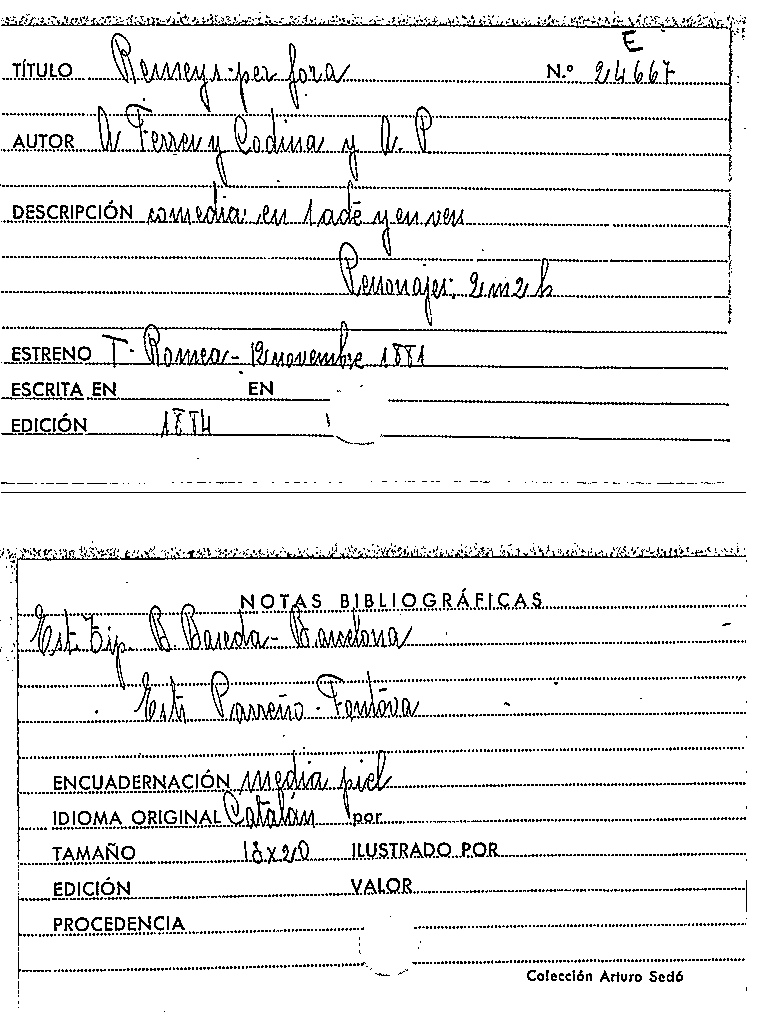 E
TÍTULO Remeys per fora N.º 24667
AUTOR A Ferrer y Codina y A. P
DESCRIPCIÓN comedia en 1 acte y en ven
Personajes: 2 m 2 h
ESTRENO T. Romea - 12 novembre 1881
ESCRITA EN EN
EDICIÓN 1884
NOTAS BIBLIOGRÁFICAS
Est. Tip. B. Baseda - Barcelona
Estr Parreño - Fontova
ENCUADERNACIÓN media piel
IDIOMA ORIGINAL Catalán por
TAMAÑO 18x20 ILUSTRADO POR
EDICIÓN VALOR
PROCEDENCIA
Colección Arturo Sedó